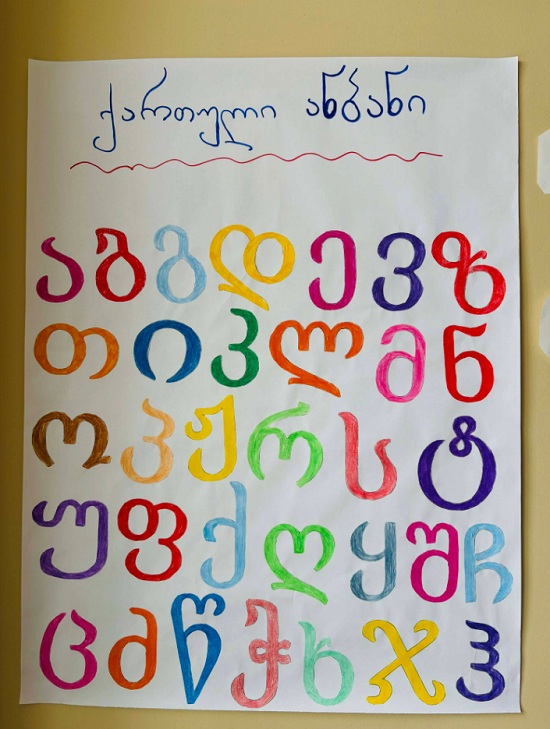 ქართული ანბანი
ა ბ გ დ ე ვ ზ
თ ი კ ლ მ ნ
ო პ ჟ რ ს ტ
უ ფ ქ ღ ყ შ ჩ
ც ძ წ ჭ ხ ჯ ჰ